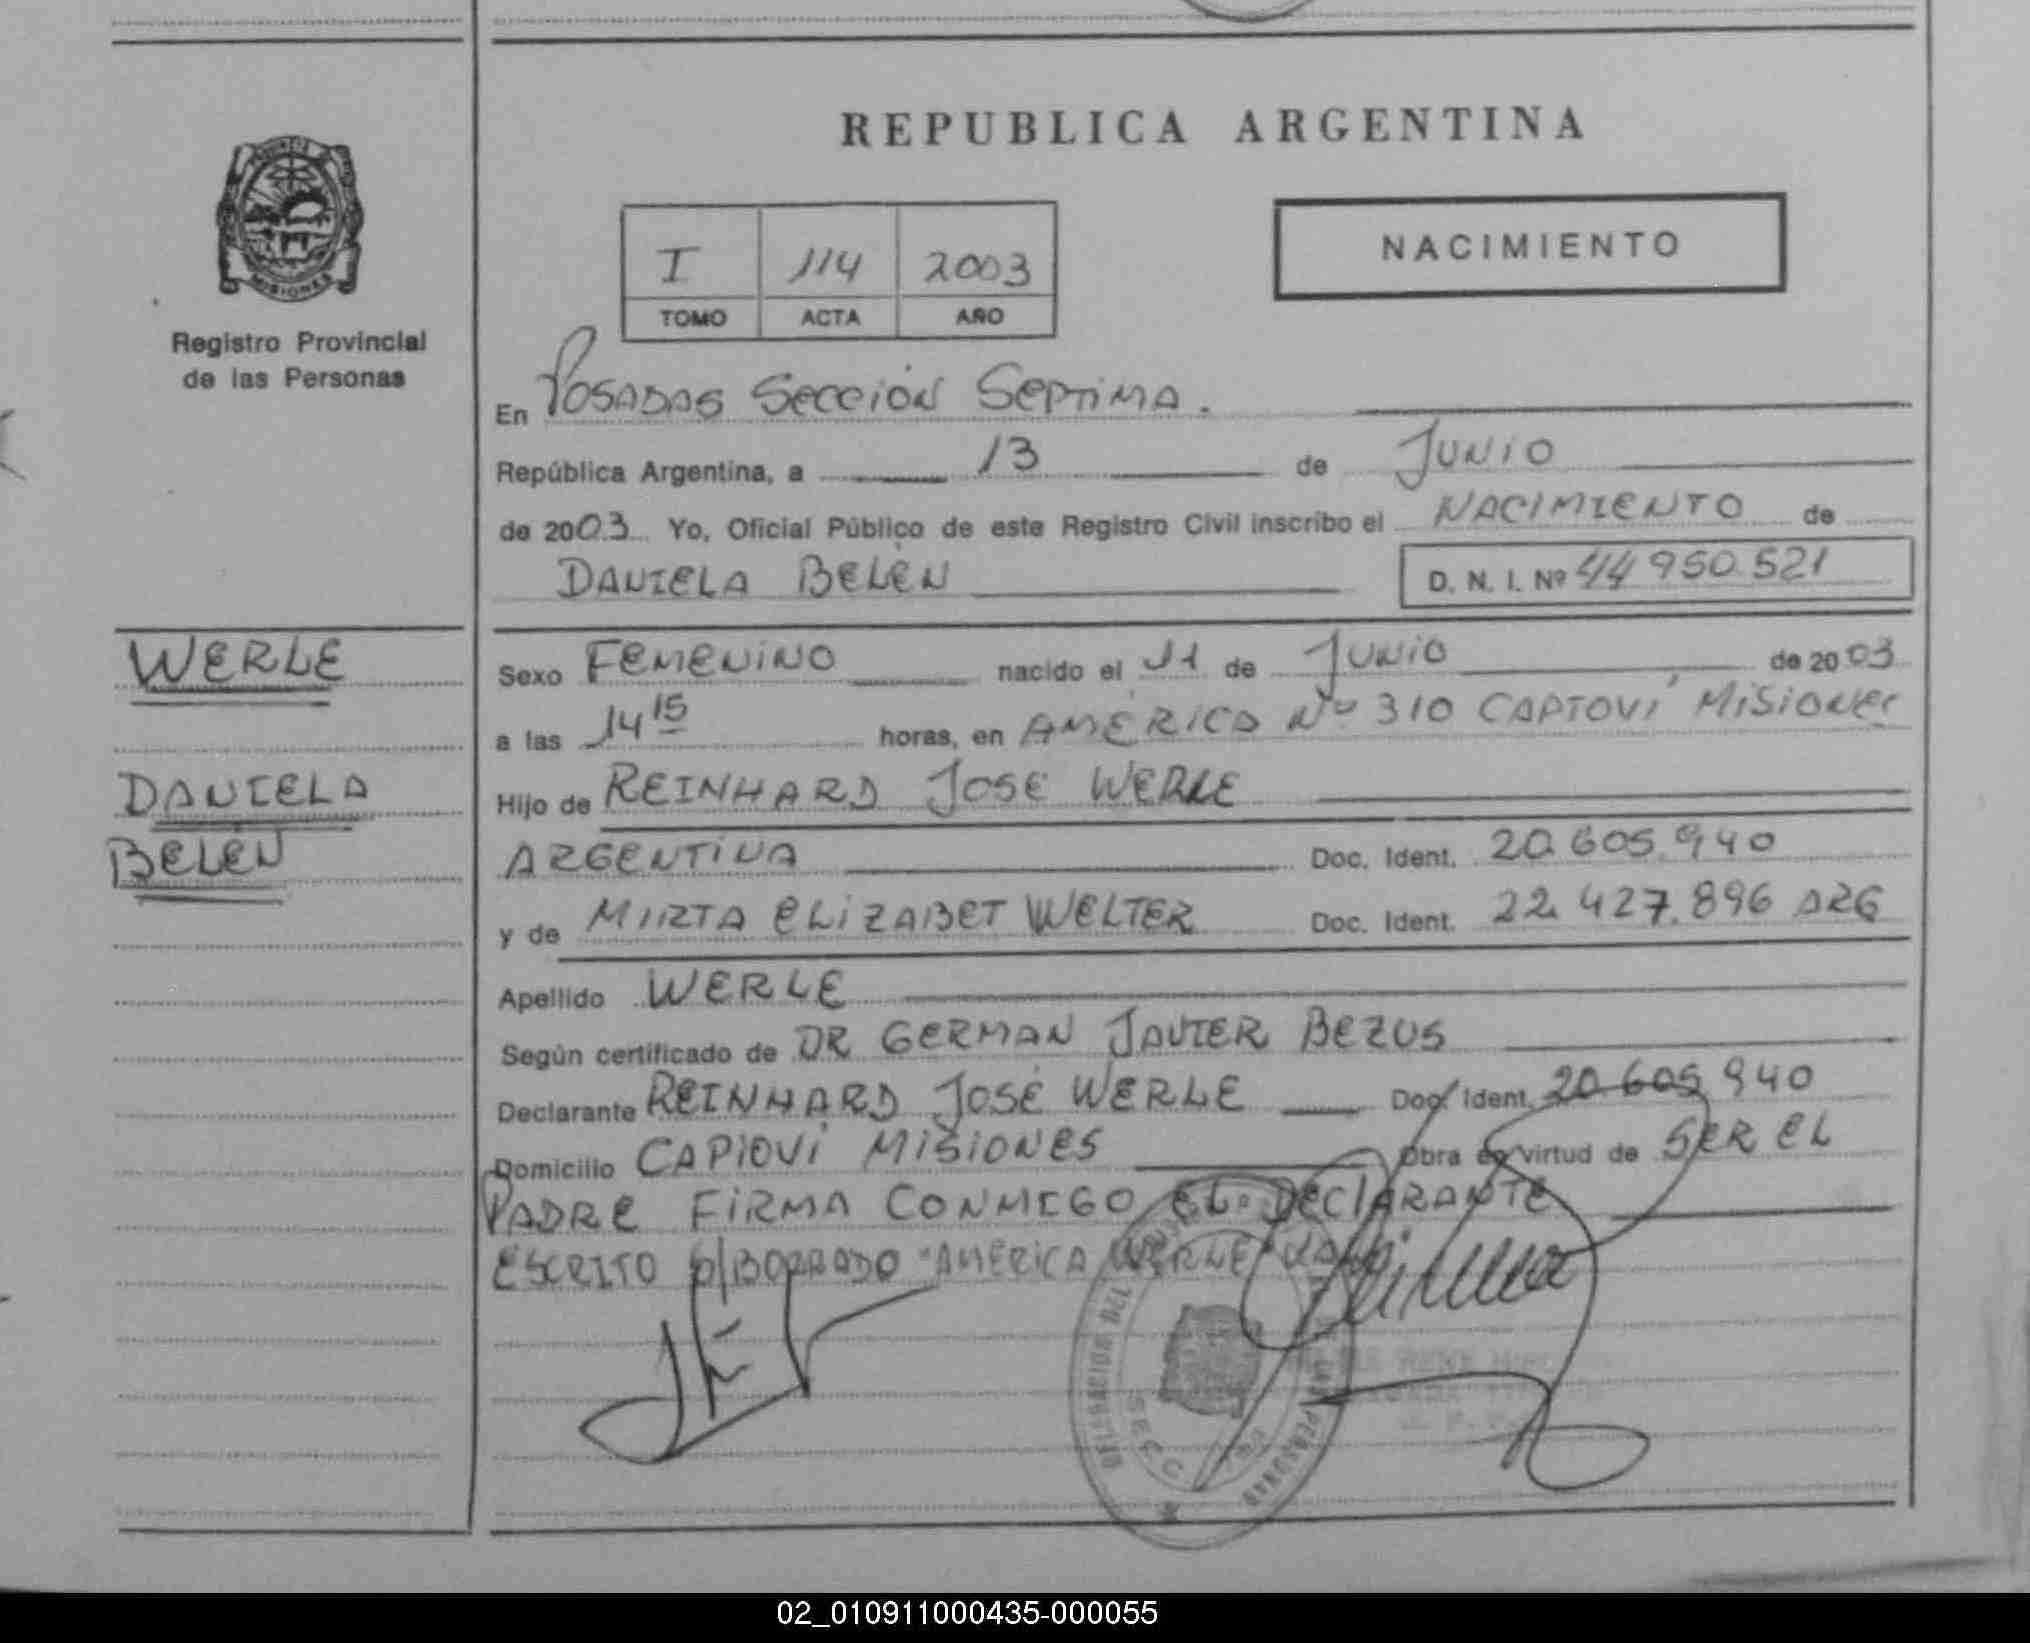 REPUBLICA ARGENTINA
MISIONES
Registro Provincial
de las Personas
I 114 2003
TOMO ACTA AÑO
NACIMIENTO
En POSADAS SECCIÓN SEPTIMA.
República Argentina, a 13 de JUNIO
de 2003 Yo, Oficial Público de este Registro Civil inscribo el NACIMIENTO de
DANIELA BELÉN D. N. I. Nº 44 950.521
WERLE
DANIELA
BELÉN
Sexo FEMENINO nacido el 11 de JUNIO de 2003
a las 14 15 horas, en AMÉRICA Nº 310 CAPIOVÍ MISIONES
Hijo de REINHARD JOSÉ WERLE
ARGENTINA Doc. Ident. 20.605.940
y de MIRTA ELIZABET WELTER Doc. Ident. 22.427.896 ARG
Apellido WERLE
Según certificado de DR GERMAN JAVIER BEZUS
Declarante REINHARD JOSÉ WERLE Doc. Ident. 20 605 940
Domicilio CAPIOVÍ MISIONES Obra en virtud de SER EL
PADRE FIRMA CONMIGO EL DECLARANTE
ESCRITO S/BORRADO "AMERICA WERLE"
DELEGACION DEL
SECC
PERSONAS
02_010911000435-000055